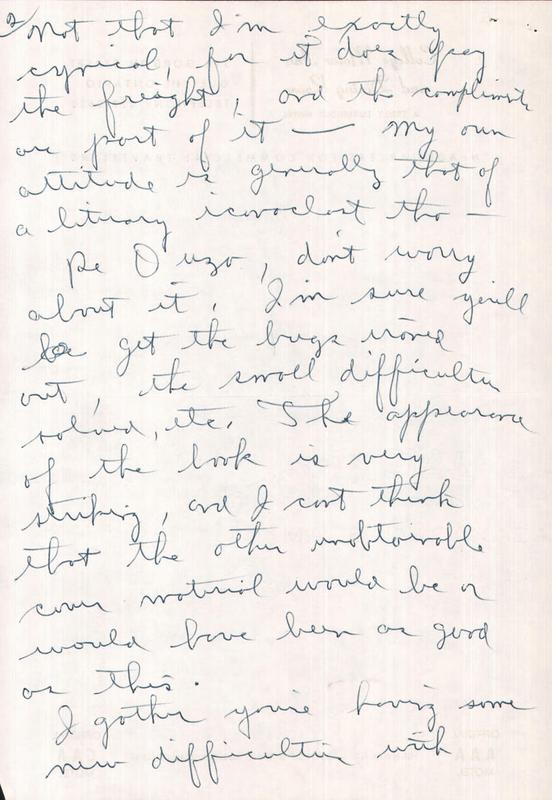 2/ Not that I'm exactly
cynical, for it does pay
the freight, and the compliments
are part of it — My own
attitude is generally that of
a literary iconoclast tho —
Re Ouzo, don't worry
about it, I'm sure you'll
get the bugs ironed
out, the small difficulties
solved, etc. The appearance
of the book is very
striking, and I can't think
that the other unobtainable
cover material would be or
would have been as good
as this.
I gather you're having some
new difficulties with